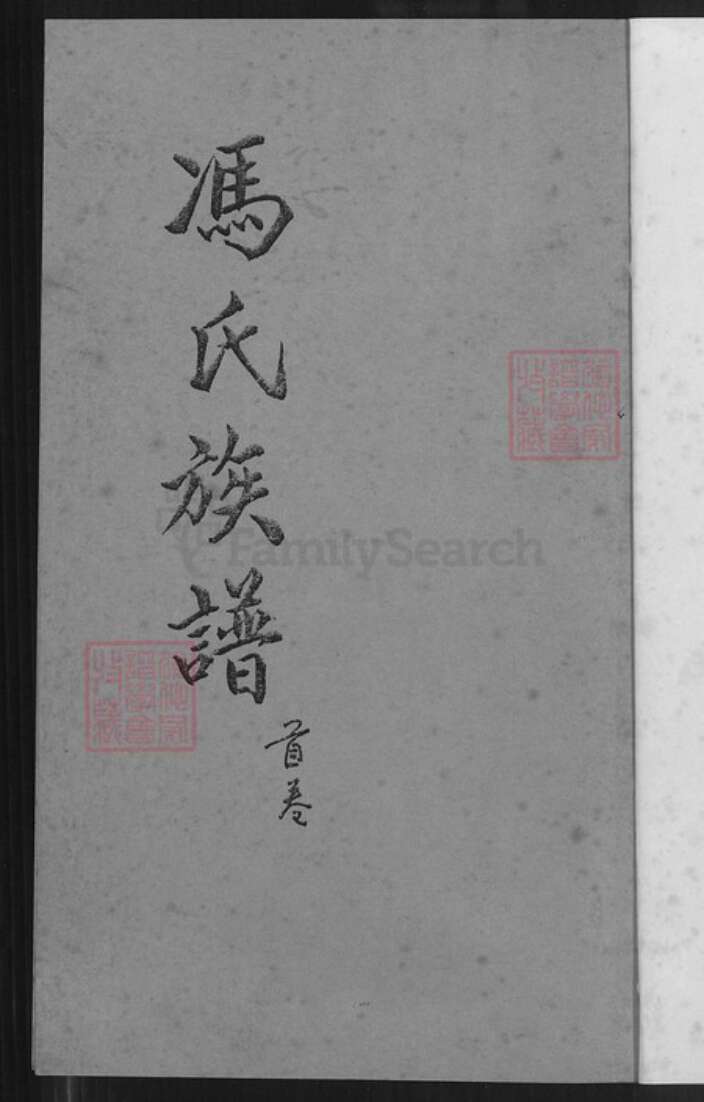 馮氏族譜
首卷
FamilySearch